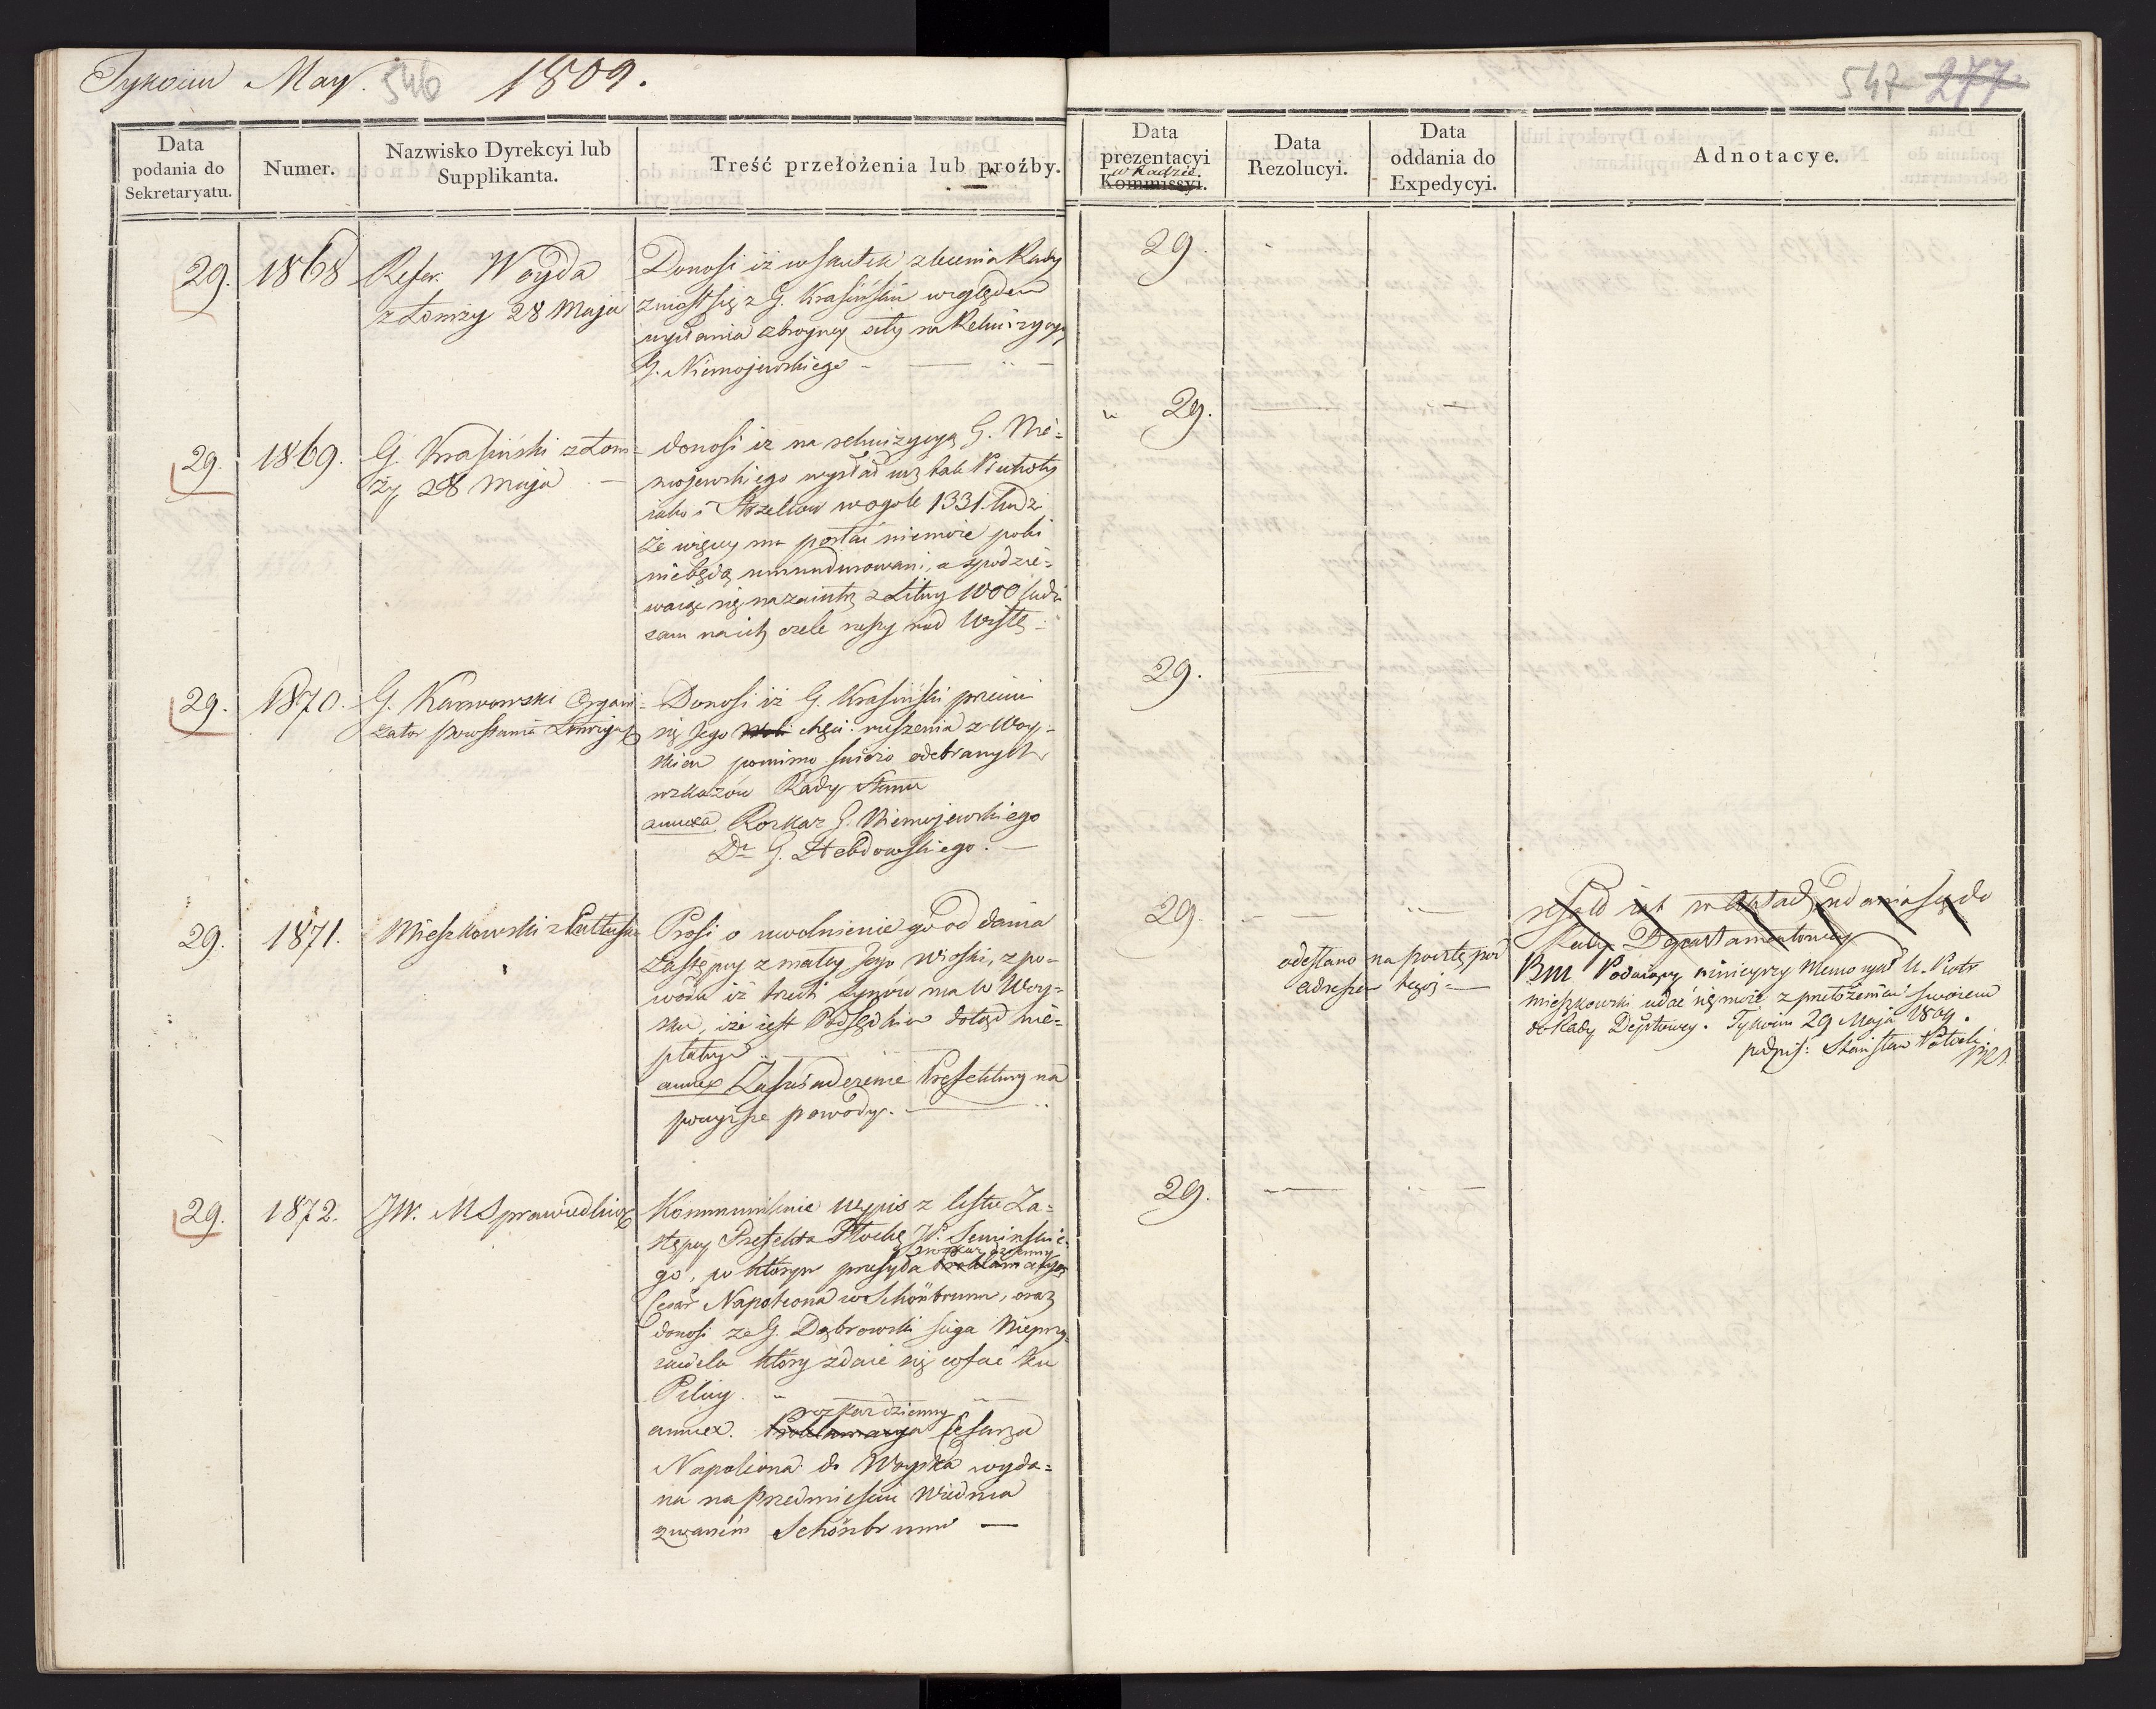 Tykocin May. 546 1809.
547 277
Data podania do Sekretaryatu.
Numer.
Nazwisko Dyrekcyi lub Supplikanta.
Treść przełożenia lub proźby.
Data prezentacyi w Radzie Kommissyi.
Data Rezolucyi.
Data oddania do Expedycyi.
Adnotacye.
29. 1868 Refer. Woyda
z Łomży 28 Maja
Donosi iż w skutek zlecenia Rady
zniosł się z G. Krasińskim względem
wysłania zbroyney siły na Rekwizycyą
G. Niemojewskiego
29.
29. 1869. G. Krasiński z Łom=
ży 28 Maja
donosi iż na rekwizycyą G. Nie=
mojewskiego wysłał
iako i Strzelców wogole 1331. ludzi
że więcey nie
niebędą umundurowani, a spodzie=
waiąc się nazaiutrz z Litwy 1000 ludzi
sam na ich czele ruszy nad Wisłę
29.
29. 1870. G. Karwowski Organi=
zator powstania
Donosi iż G. Krasiński
się Jego chęci ruszenia z Woy=
skiem pomimo świeżo odebranych
wskazów Rady Stanu
annexa Rozkaz G. Niemojewskiego
Do G. Hebdowskiego.
29.
29. 1871. Mieszkowski z Pułtuska
Prosi o uwolnienie go od dania
Zastępcy z małey Jego Wioski, z po=
wodu iż trzech synów ma w Woy=
sku, iże iest Podsędkiem dotąd nie=
płatnym
annex Zaświadczenie Prefektury na
powyższe powody.
29.
odesłano na pocztę pod
adressem tegoż
Rady Departamentowey
BM Podaiący ninieyszy Memoryał U. Piotr
Mieszkowski udać się może z przełożeniem swoiem
do Rady Deptowey. Tykocin 29 Maja 1809.
podpis: Stanisław Potocki
29. 1872. JW. M Sprawiedliwo
Kommunikuie Wypis z listu Za=
stępcy Prefekta Płockie W.
go, w którym przesyła rozkaz dzienny
Cesar Napoleona w Schönbrunn, oraz
donosi że G. Dąbrowski ściga Nieprzy=
iaciela który zdaie się cofać ku
Pilicy.
annex. rozkaz dzienny Proklamacya Cesarza
Napoleona do Woyska wyda=
na na przedmieściu Wiednia
zwanem Schönbrunn
29.